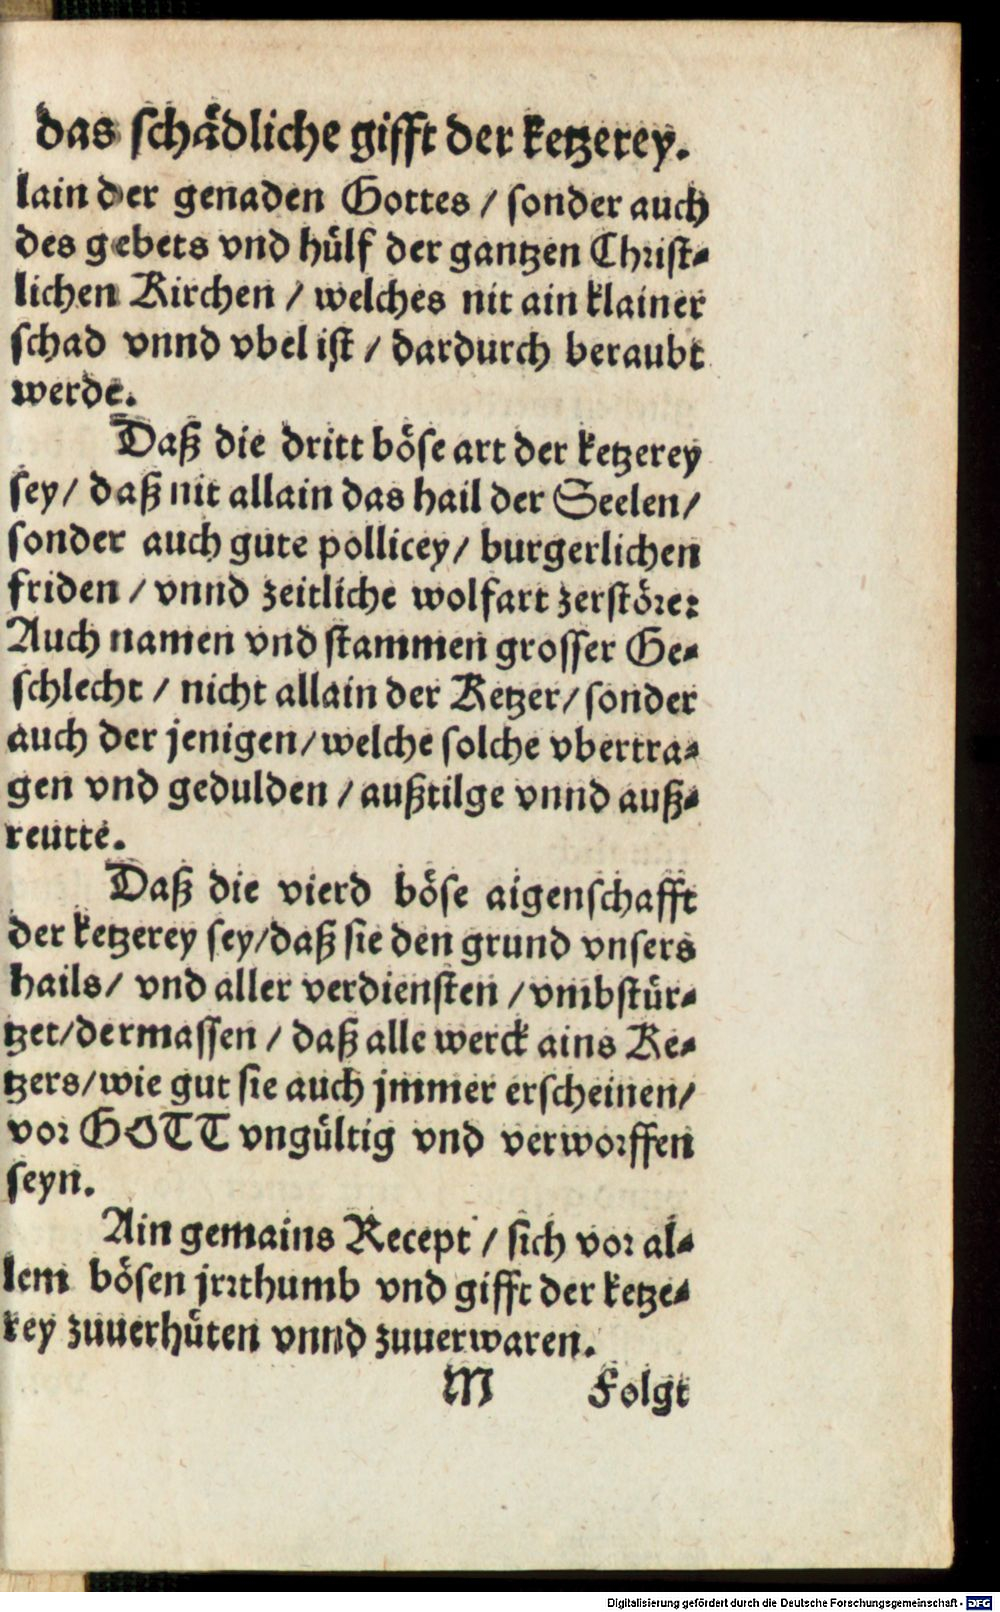 das schädliche gifft der ketzerey.
lain der genaden Gottes / sonder auch
des gebets vnd hülf der gantzen Christ-
lichen Kirchen / welches nit ain klainer
schad vnnd vbel ist / dardurch beraubt
werde.
Daß die dritt böse art der ketzerey
sey / daß nit allain das hail der Seelen /
sonder auch gute pollicey / burgerlichen
friden / vnnd zeitliche wolfart zerstöre:
Auch namen vnd stammen grosser Ge-
schlecht / nicht allain der Ketzer / sonder
auch der jenigen / welche solche vbertra-
gen vnd gedulden / außtilge vnnd auß-
reutte.
Daß die vierd böse aigenschafft
der ketzerey sey / daß sie den grund vnsers
hails / vnd aller verdiensten / vmbstür-
tzet / dermassen / daß alle werck ains Ke-
tzers / wie gut sie auch jmmer erscheinen /
vor GOTT vngültig vnd verworffen
seyn.
Ain gemains Recept / sich vor al-
lem bösen jrrthumb vnd gifft der ketze-
rey zuuerhüten vnnd zuuerwaren.
M Folgt
Digitalisierung gefördert durch die Deutsche Forschungsgemeinschaft - DFG